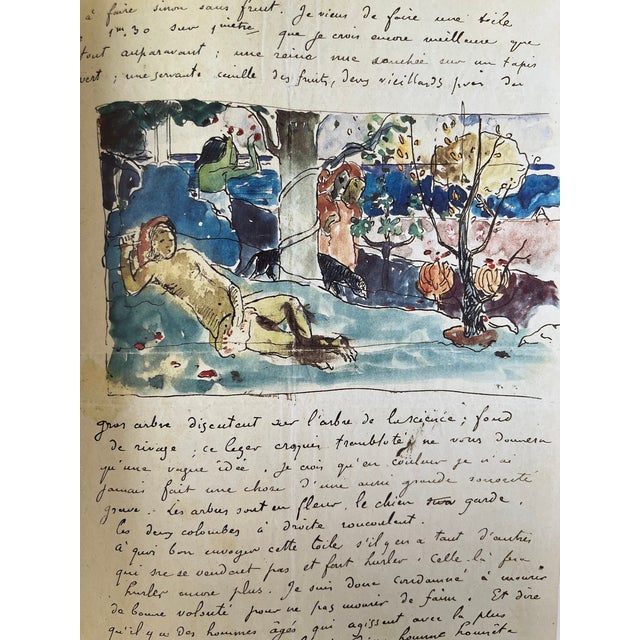 à faire sinon sans fruit. Je viens de faire une toile
1m,30 sur 1 mètre que je crois encore meilleure que
tout auparavant; une reine nue couchée sur un tapis
vert; une servante cueille des fruits, deux vieillards près du
gros arbre discutent sur l'arbre de la science; fond
de rivage; ce léger croquis trembloté ne vous donnera
qu'une vague idée. Je crois qu'en couleur je n'ai
jamais fait une chose d'une aussi grande sonorité
grave. Les arbres sont en fleur, le chien garde,
les deux colombes à droite roucoulent.
à quoi bon envoyer cette toile s'il y en a tant d'autres
qui ne se vendent pas et font hurler. Celle-là fera
hurler encore plus. Je suis donc condamné à mourir
de bonne volonté pour ne pas mourir de faim. Et dire
qu'il y a des hommes âgés qui agissent avec la plus
homme honnêt-